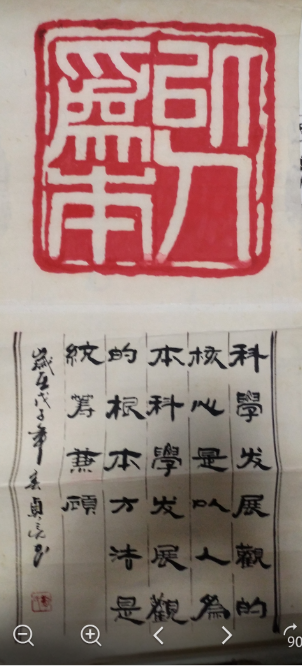 以人
為本
科學发展觀的
核心是以人為
本科學发展觀
的根本方法是
統筹兼顧
歲在戊子年
90